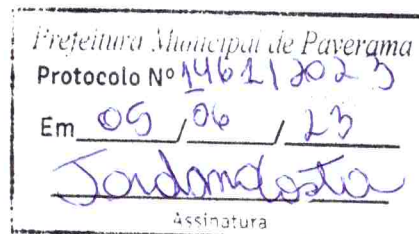 Prefeitura Municipal de Paverama
Protocolo Nº 1461/2023
Em 05/06/23
Assinatura